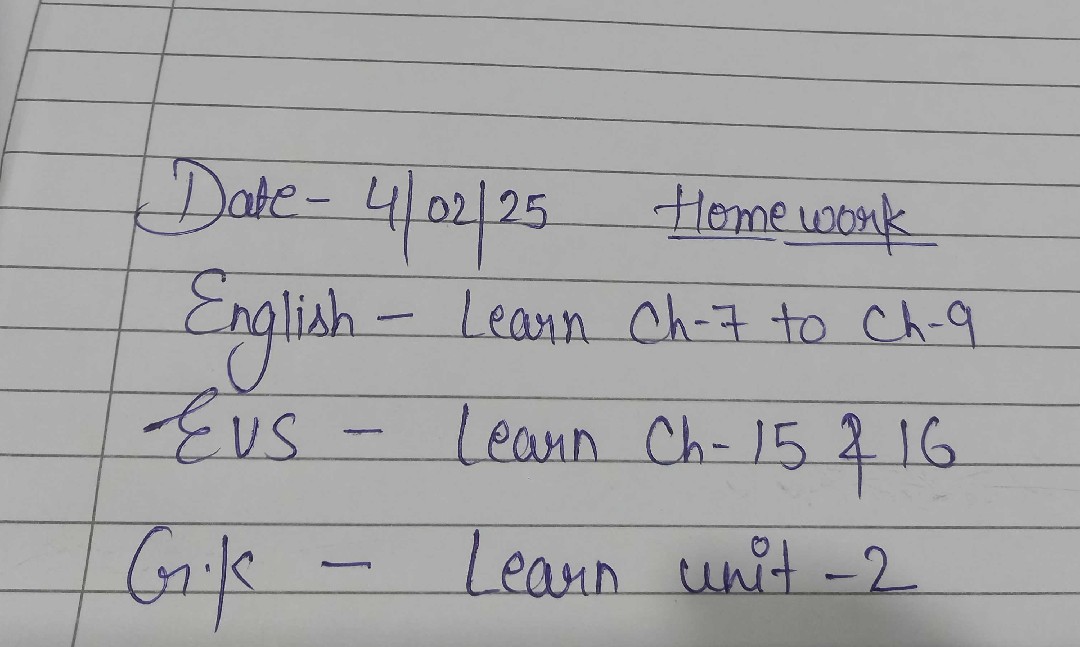 Date- 4/02/25 Homework
English - Learn Ch-7 to Ch-9
EVS - Learn Ch-15 & 16
G.K - Learn unit-2